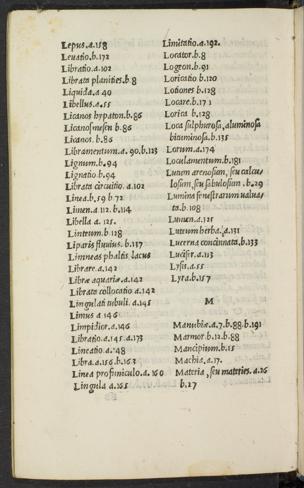 Lepus.a.158
Leuatio.b.172
Libratio.a.102
Librata planities.b.8
Liquida.a 40
Libellus.a.55
Licanos hypaton.b.86
Licanos mesen b.86
Licanos.b.86
Libramentum.a.90.b.123
Lignum.b.94
Lignatio b.94
Librata circuitio.a.102
Linea.b.59 b 72
Limen.a 112.b.114
Libella a.125.
Linteum b 128
Liparis fluuius.b.137
Limneas phaltis lacus
Librare.a.142
Libræ aquariæ.a.142
Librata collocatio a.142
Lingulati tubuli.a.145
Limus a 146
Limpidior.a.146
Libratio.a.145.a.173
Lineatio.a.148
Libra.a.156.b.163
Linea profimiculo.a.160
Lingula a.165
Limitatio a.192.
Locator.b.8
Logeon.b.91
Loricatio b.120
Lotiones b.128
Locare.b.171
Lorica b.128
Loca sulphurosa, aluminosa
bituminosa.b.135
Lorum.a.174
Loculamentum.b.181
Lutum arenosum, seu calcu
losum, seu sabulosum.b.29
Lumina fenestrarum ualua/
ta.b.108
Lumen.a.125
Luteum herba.a.131
Lucerna concinnata.b.133
Lucifer.a.113
Lysis.a.55
Lyra.b.157
M
Manubiæ.a.7.b.88.b.191
Marmor.b.12.b.88
Mancipium.b.15
Machia.a.17.
Materia, seu materies.a.26
b.27